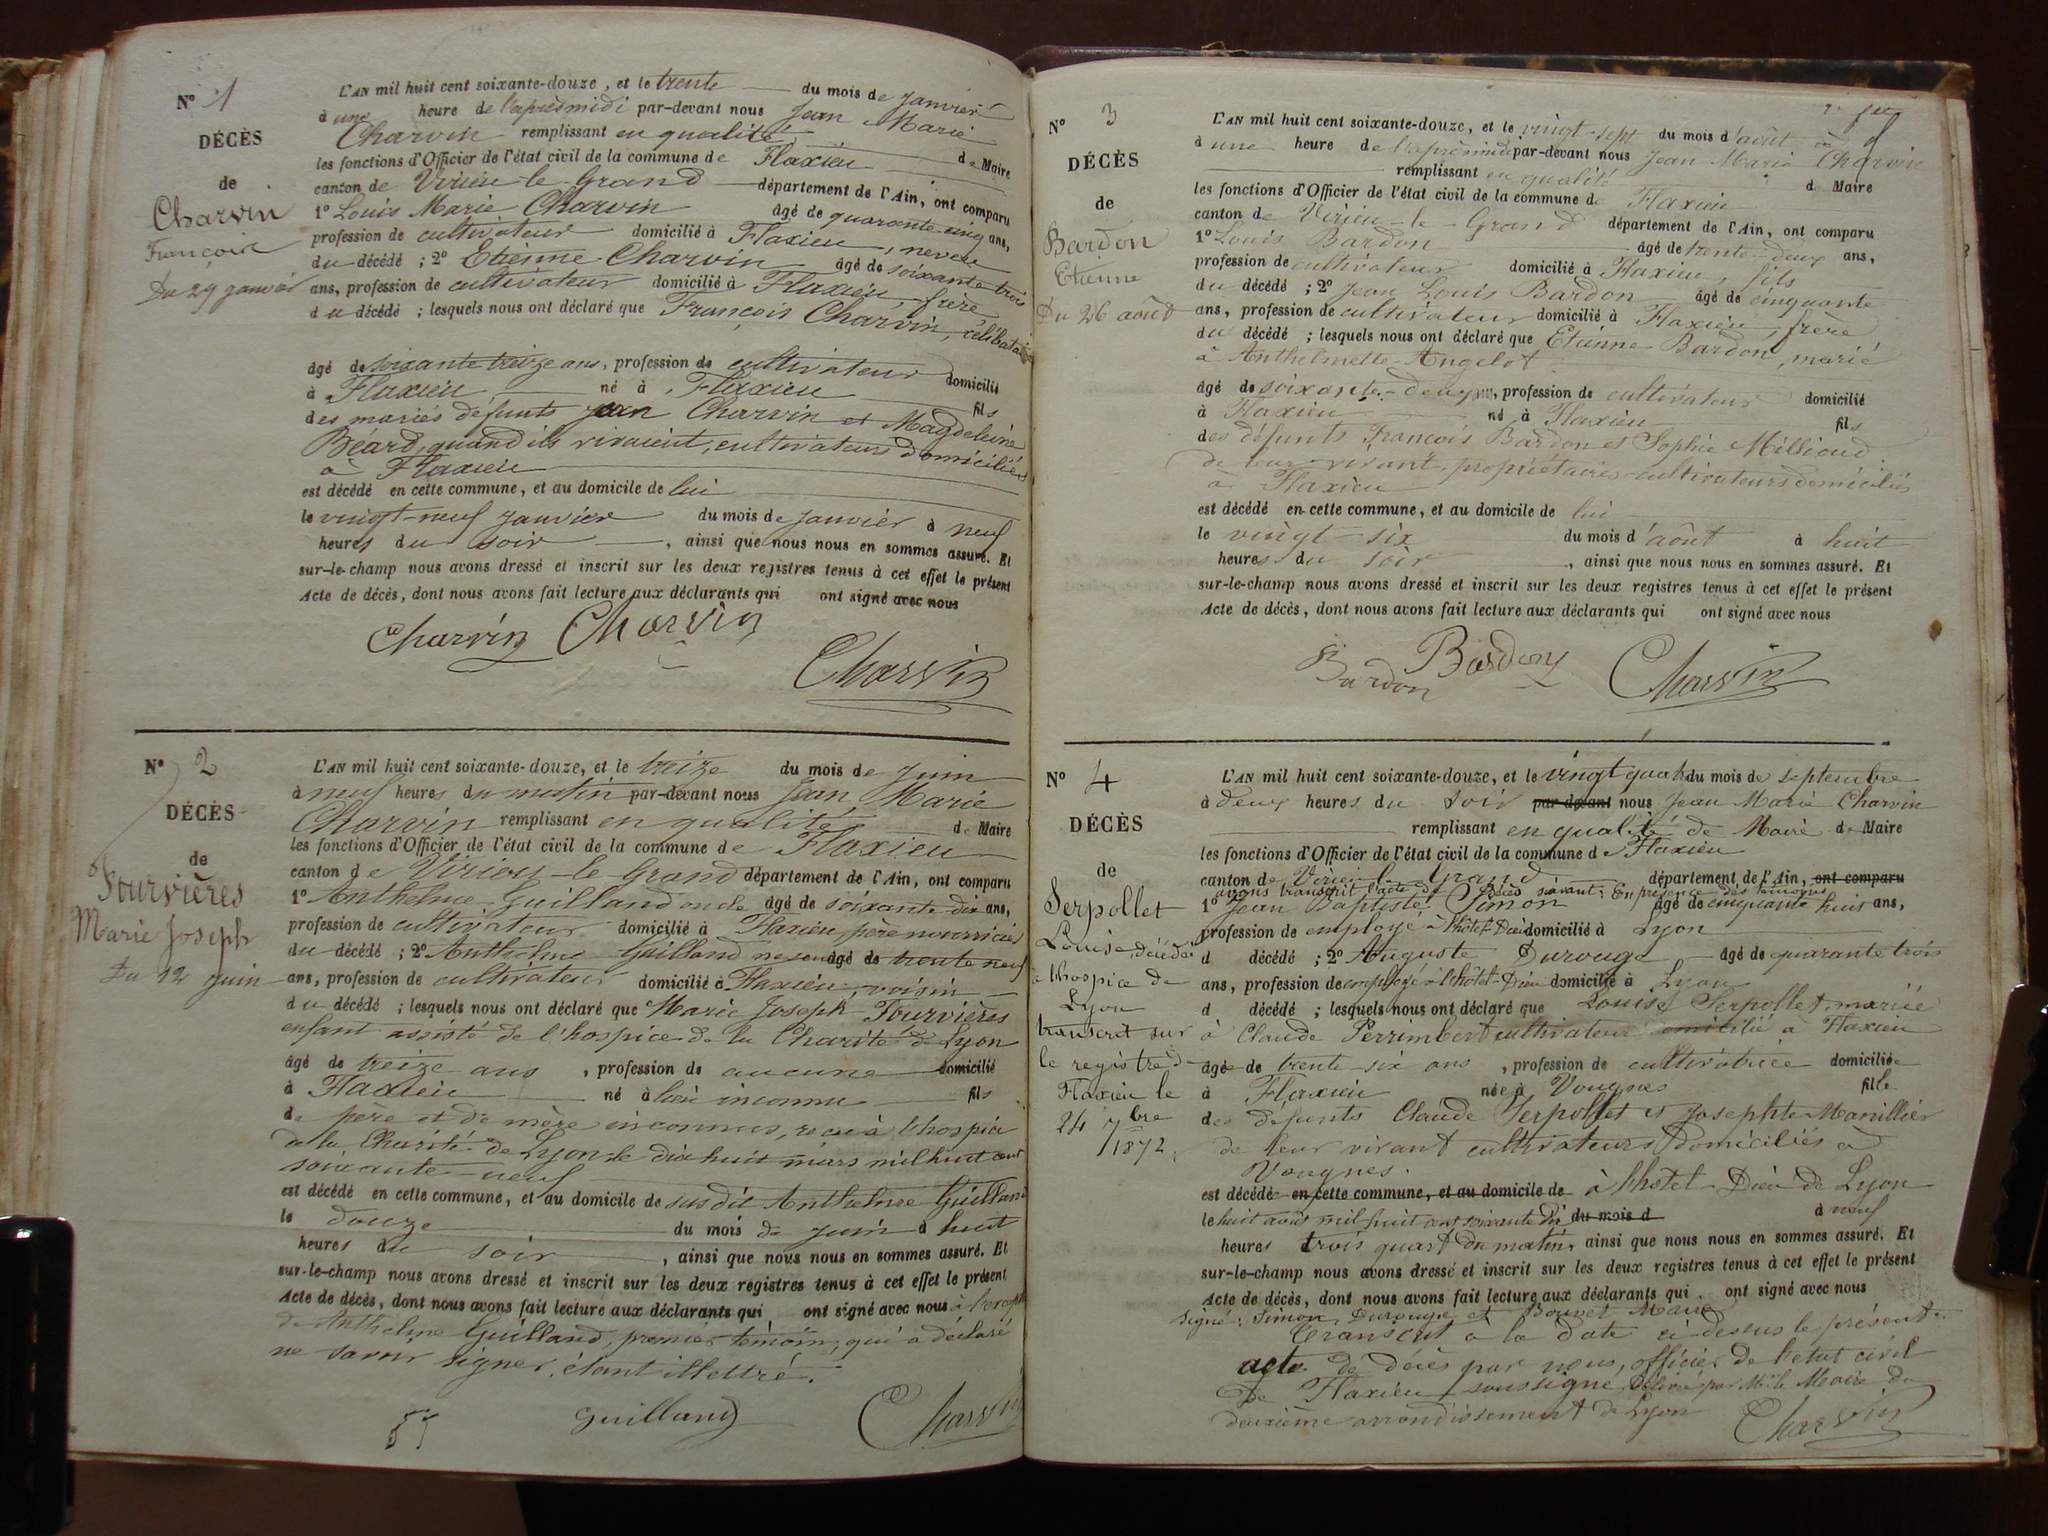 N° 1
DÉCÈS
de
Charvin
François
Du 29 janvier
L'AN mil huit cent soixante-douze, et le trente du mois de janvier
à une heure de l'après midi par-devant nous Jean Marie
Charvin remplissant en qualité de Maire
les fonctions d'Officier de l'état civil de la commune de Flaxieu
canton de Virieu-le-Grand département de l'Ain, ont comparu
1° Louis Marie Charvin âgé de quarante-cinq ans,
profession de cultivateur domicilié à Flaxieu, neveu
du décédé ; 2° Etienne Charvin âgé de soixante-trois
ans, profession de cultivateur domicilié à Flaxieu, frère
du décédé ; lesquels nous ont déclaré que François Charvin, célibataire
âgé de soixante treize ans, profession de cultivateur domicilié
à Flaxieu né à Flaxieu fils
des mariés défunts Jean Charvin et Magdeleine
Béard, quand ils vivaient, cultivateurs domiciliés
à Flaxieu
est décédé en cette commune, et au domicile de lui
le vingt-neuf janvier du mois de janvier à neuf
heures du soir, ainsi que nous nous en sommes assuré. Et
sur-le-champ nous avons dressé et inscrit sur les deux registres tenus à cet effet le présent
Acte de décès, dont nous avons fait lecture aux déclarants qui ont signé avec nous
Charvin Charvin
Charvin
N° 2
DÉCÈS
de
Fourvières
Marie Joseph
Du 12 juin
L'AN mil huit cent soixante-douze, et le treize du mois de juin
à neuf heures du matin par-devant nous Jean Marie
Charvin remplissant en qualité de Maire
les fonctions d'Officier de l'état civil de la commune de Flaxieu
canton de Virieu-le-Grand département de l'Ain, ont comparu
1° Anthelme Guilland oncle âgé de soixante-dix ans,
profession de cultivateur domicilié à Flaxieu, père nourricier
du décédé ; 2° Anthelme Guilland neveu âgé de trente neuf
ans, profession de cultivateur domicilié à Flaxieu, voisin
du décédé ; lesquels nous ont déclaré que Marie Joseph Fourvières
enfant assisté de l'hospice de la Charité de Lyon
âgé de treize ans, profession de aucune domicilié
à Flaxieu né à lieu inconnu fils
de père et de mère inconnus, reçu à l'hospice
de la Charité de Lyon le dix huit mars mil huit cent
soixante-neuf
est décédé en cette commune, et au domicile de susdit Anthelme Guilland
le douze du mois de juin à huit
heures du soir, ainsi que nous nous en sommes assuré. Et
sur-le-champ nous avons dressé et inscrit sur les deux registres tenus à cet effet le présent
Acte de décès, dont nous avons fait lecture aux déclarants qui ont signé avec nous à l'except
de Anthelme Guilland, premier témoin, qui a déclaré
ne savoir signer, étant illettré.
Guilland
Charvin
N° 3
DÉCÈS
de
Bardon
Etienne
Du 26 août
L'AN mil huit cent soixante-douze, et le vingt-sept du mois d'août
à une heure de l'après midi par-devant nous Jean Marie Charvin
remplissant en qualité de Maire
les fonctions d'Officier de l'état civil de la commune de Flaxieu
canton de Virieu-le-Grand département de l'Ain, ont comparu
1° Louis Bardon âgé de trente-deux ans,
profession de cultivateur domicilié à Flaxieu, fils
du décédé ; 2° Jean Louis Bardon âgé de cinquante
ans, profession de cultivateur domicilié à Flaxieu, frère
du décédé ; lesquels nous ont déclaré que Etienne Bardon, marié
à Anthelmette Angelot
âgé de soixante-deux ans, profession de cultivateur domicilié
à Flaxieu né à Flaxieu fils
des défunts François Bardon et Sophie Millioud
de leur vivant, propriétaires-cultivateurs domiciliés
à Flaxieu
est décédé en cette commune, et au domicile de lui
le vingt-six du mois d'août à huit
heures du soir, ainsi que nous nous en sommes assuré. Et
sur-le-champ nous avons dressé et inscrit sur les deux registres tenus à cet effet le présent
Acte de décès, dont nous avons fait lecture aux déclarants qui ont signé avec nous
Bardon Bardon Charvin
N° 4
DÉCÈS
de
Serpollet
Louise, décédée
à l'hospice de
Lyon
transcrit sur
le registre d
Flaxieu le
24 7bre
1872.
L'AN mil huit cent soixante-douze, et le vingt quat du mois de septembre
à deux heures du soir par-devant nous Jean Marie Charvin
remplissant en qualité de Maire de Maire
les fonctions d'Officier de l'état civil de la commune de Flaxieu
canton de Virieu-le-Grand département de l'Ain, ont comparu
avons transcrit l'acte de décès suivant : En présence des témoins
1° Jean Baptiste Simon âgé de cinquante huit ans,
profession de employé à l'hôtel-Dieu domicilié à Lyon
d décédé ; 2° Auguste Durouge âgé de quarante trois
ans, profession de employé à l'hôtel-Dieu domicilié à Lyon
d décédé ; lesquels nous ont déclaré que Louise Serpollet, mariée
à Claude Perrimbert cultivateur domicilié à Flaxieu
âgée de trente-six ans, profession de cultivatrice domiciliée
à Flaxieu née à Vougnes fille
des défunts Claude Serpollet et Josephte Marillier
de leur vivant cultivateurs domiciliés à
Vongnes.
est décédée en cette commune, et au domicile de à l'hôtel-Dieu de Lyon
le huit août mil huit cent soixante dix du mois d à neuf
heures trois quart du matin, ainsi que nous nous en sommes assuré. Et
sur-le-champ nous avons dressé et inscrit sur les deux registres tenus à cet effet le présent
Acte de décès, dont nous avons fait lecture aux déclarants qui ont signé avec nous
Signé : Simon, Durouge et Bouvet Maire
Transcrit à la date ci-dessus le présent
acte de décès par nous, officier de l'état civil
de Flaxieu soussigné, délivré par Mr le Maire du
deuxième arrondissement de Lyon Charvin